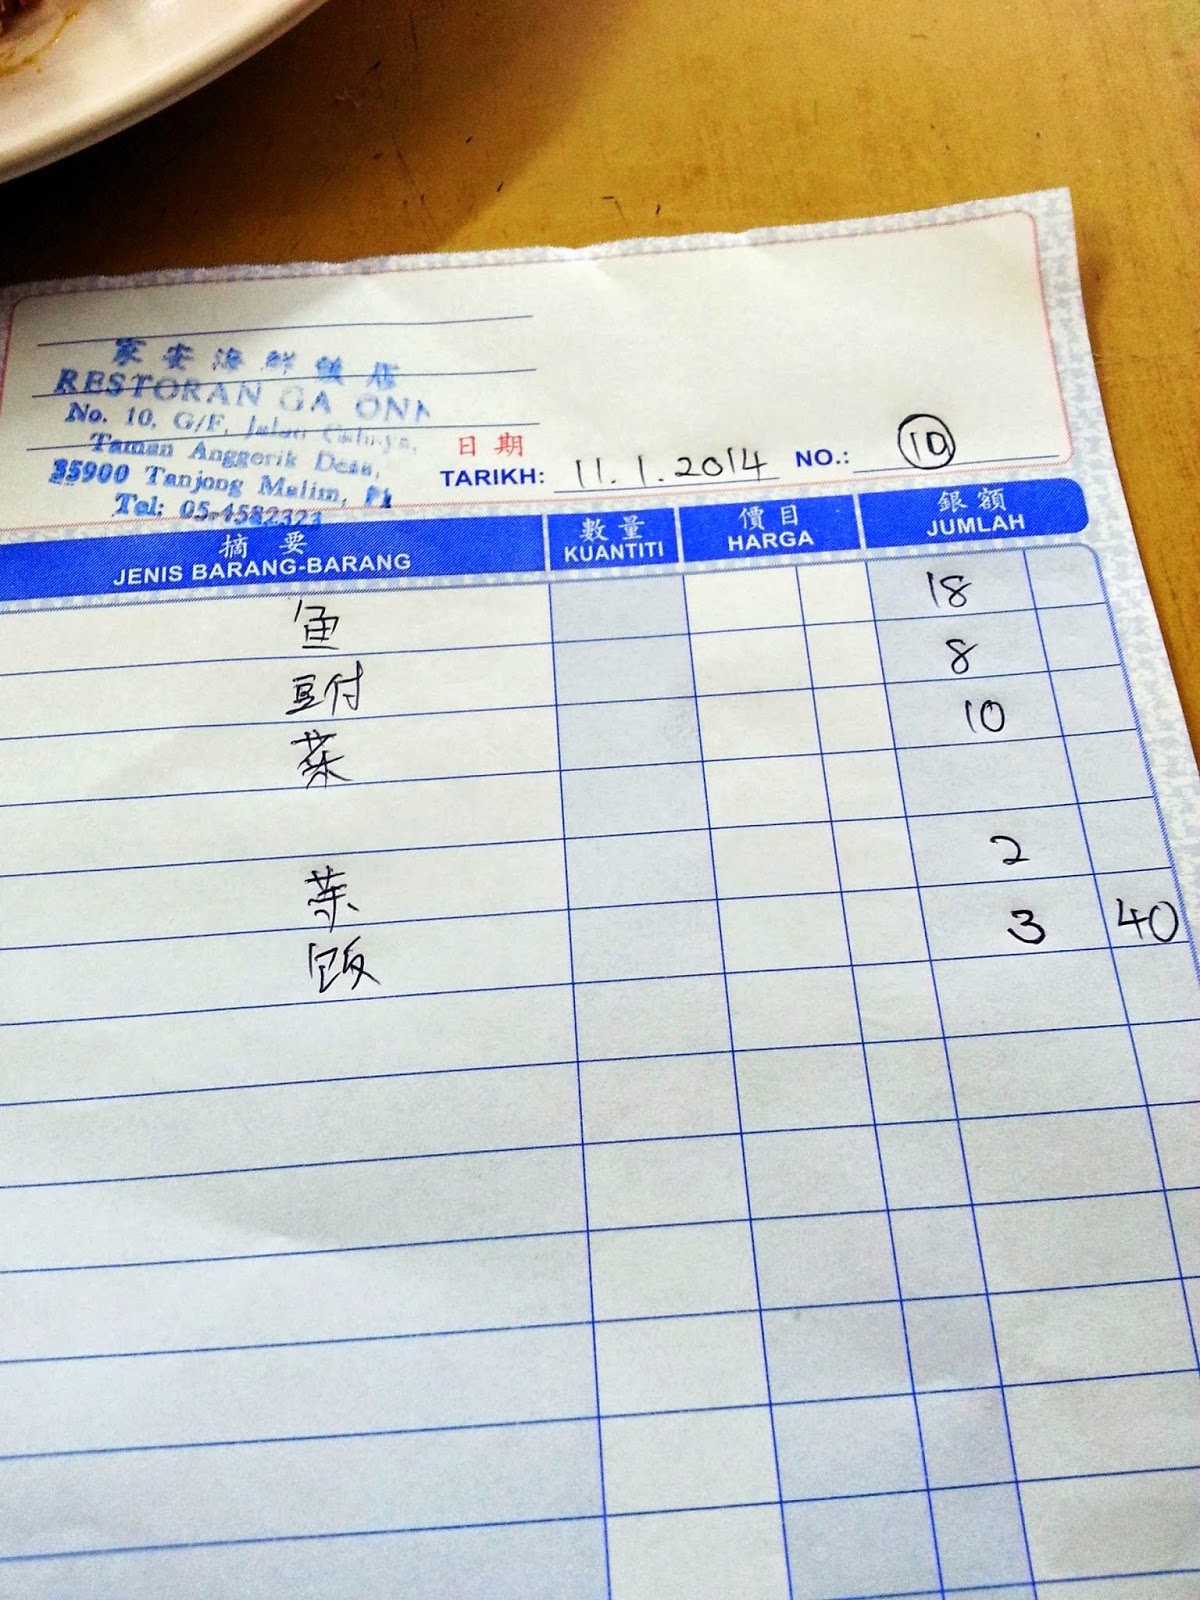 家安海鮮飯店
RESTORAN GA ONN
No. 10, G/F, Jalan Cahaya,
Taman Anggerik Desa,
35900 Tanjong Malim, Pk
Tel: 05-4582323
日期
TARIKH: 11.1.2014 NO.: 10
摘要 數量 價目 銀額
JENIS BARANG-BARANG KUANTITI HARGA JUMLAH
鱼 18
豆付 8
菜 10
茶 2
饭 3 40